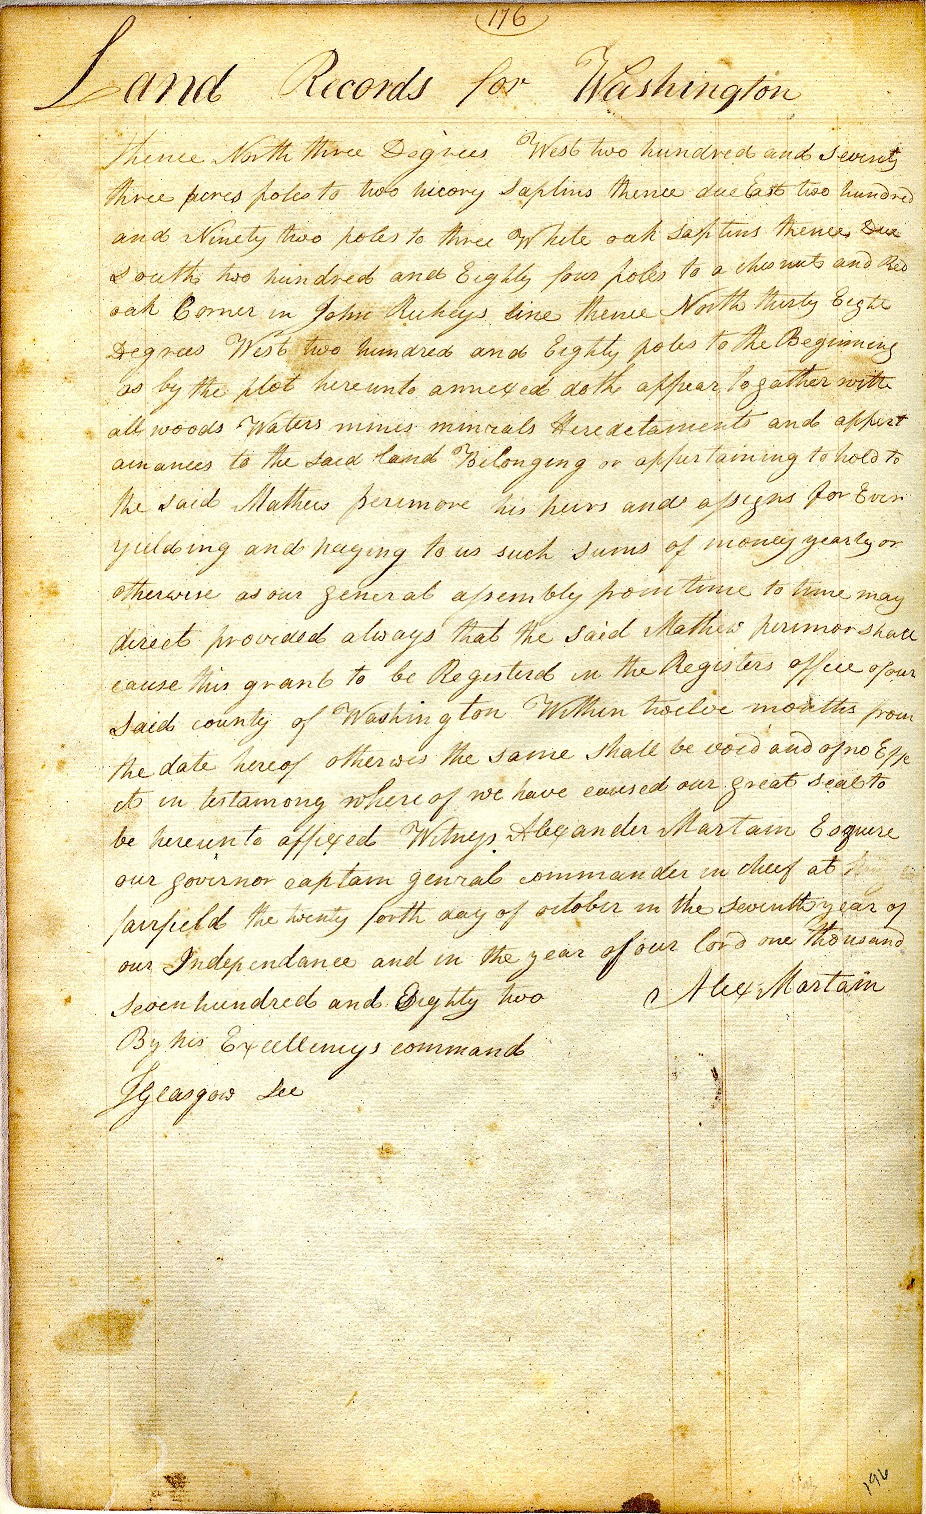 176
Land Records for Washington
thence North three Degrees West two hundred and seventy
three acres poles to two hicory Saplins thence due East two hundred
and Ninety two poles to three White oak Saplins thence Due
South two hundred and Eighty four poles to a chesnut and Red
oak Corner in John line thence North thirty Eight
Degrees West two hundred and Eighty poles to the Beginning
as by the plot hereunto annexed doth appear to gather with
all woods Waters mines minirals Heredetaments and appert
ainances to the said land Belonging or appertaining to hold to
the said Mathew his heirs and assigns for Ever
yielding and paying to us such sums of money yearly or
otherwise as our general assembly from time to time may
direct provided always that the said Mathew shall
cause this grant to be Registerd in the Registers office of our
said county of Washington Within twelve months from
the date hereof otherwis the same shall be void and of no Effe
ct in testamony whereof we have caused our great seal to
be hereunto affixed Witness Alexander Martain Esquire
our governor captain genral commander in cheef at
fairfield the twenty forth day of october in the seventh year of
our Independance and in the year of our lord one thousand
seven hundred and Eighty two Alex Martain
By his Excellencys command
J Glasgow Sec
196